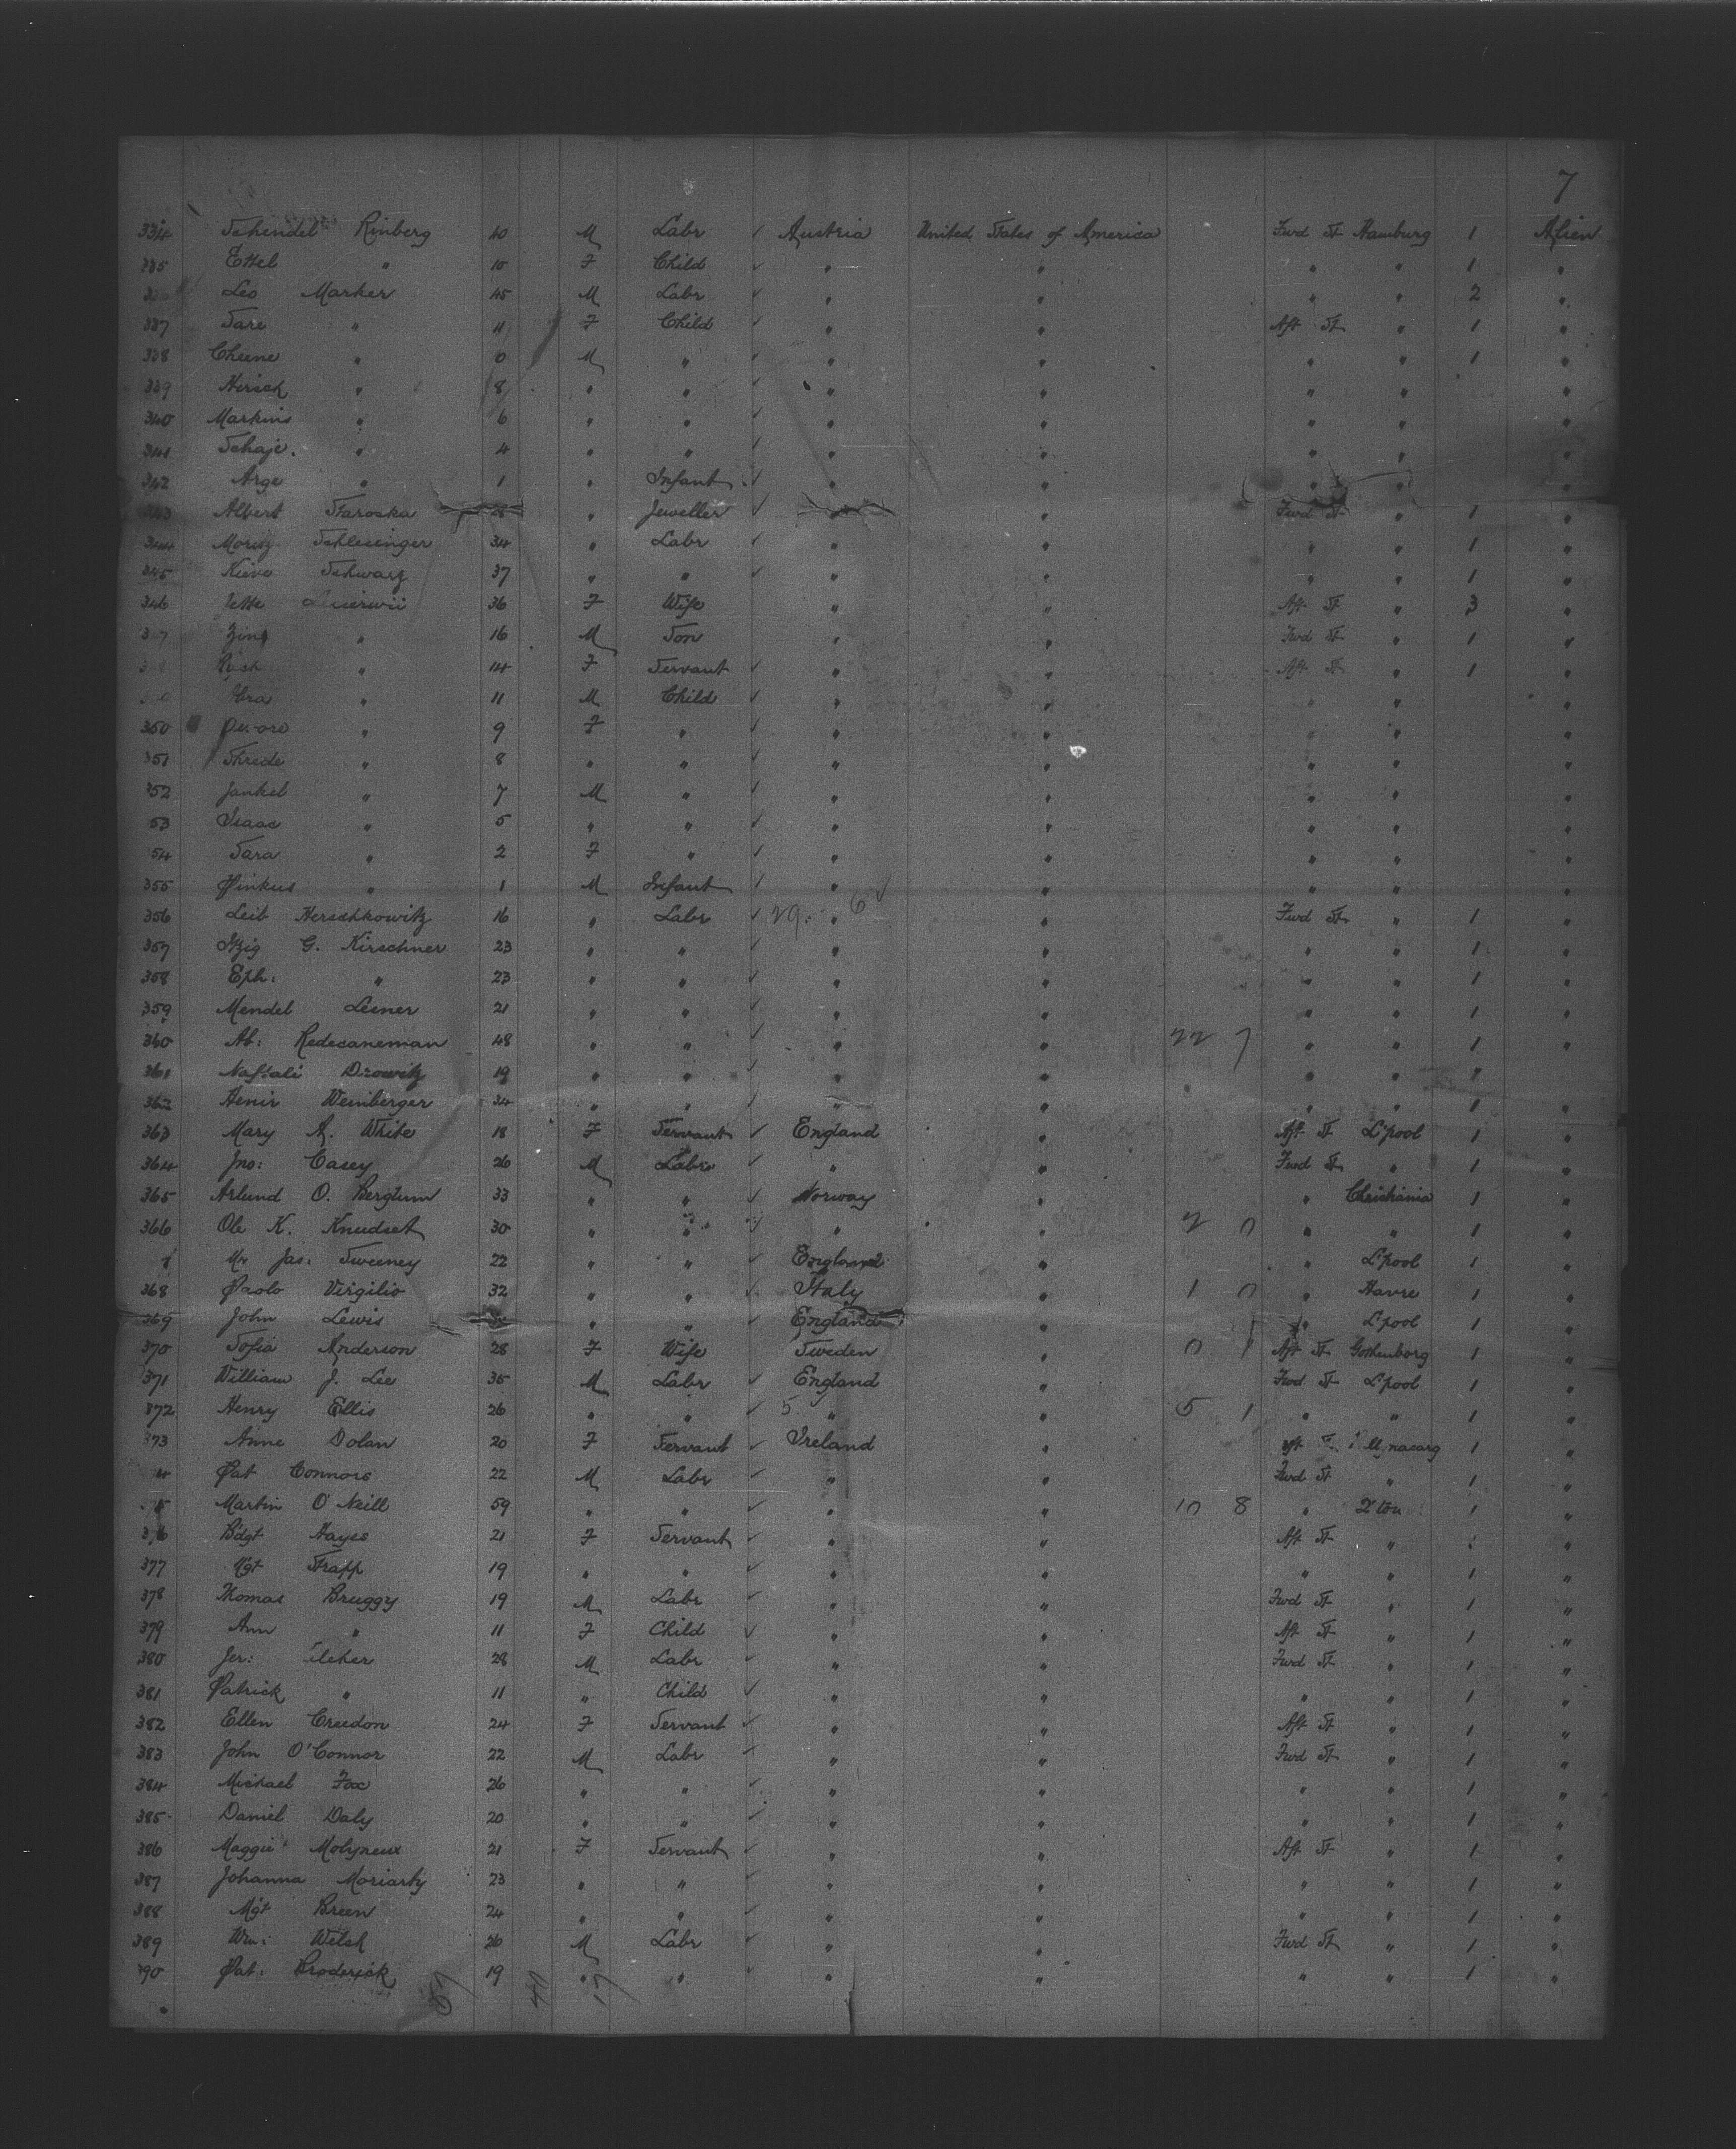 7
334 Schendel Rinberg 40 M Labr ✓ Austria United States of America Fwd St Hamburg 1 Alien
335 Ettel " 10 F Child ✓ " " " " 1 "
Leo Marker 45 M Labr ✓ " " " " 2 "
337 Sare " 11 F Child ✓ " " Aft St " 1 "
338 Cheene " 10 M " ✓ " " " " 1 "
339 Hersch " 8 " " ✓ " " " " "
340 Markus " 6 " " ✓ " " " " "
341 Schaje. " 4 " " ✓ " " " " "
342 Arge " 1 " Infant ✓ " " " " "
343 Albert Staroska " Jeweller ✓ " " Fwd St " 1 "
344 Moritz Schlesinger 34 " Labr ✓ " " " " 1 "
345 Kieve Schwarz 37 " " ✓ " " " " 1 "
346 Jette 36 F Wife " " Aft St " 3 "
347 " 16 M Son " " Fwd St " 1 "
" 14 F Servant ✓ " " Aft St " 1 "
" 11 M Child ✓ " " " " "
350 " 9 F " ✓ " " " " "
351 Shrede " 8 " " ✓ " " " " "
352 Jankel " 7 M " ✓ " " " " "
53 Isaac " 5 " " ✓ " " " " "
54 Sara " 2 F " ✓ " " " " "
355 Pinkus " 1 M Infant ✓ " " " " "
356 Leib Herschkowitz 16 " Labr ✓ 29 " 6 ✓ " Fwd St " 1 "
357 Itzig G. Kirschner 23 " " ✓ " " " " 1 "
358 Eph: " 23 " " ✓ " " " " 1 "
359 Mendel Leiner 21 " " ✓ " " " " 1 "
360 Ab: Redecaneman 48 " " ✓ " " 22 7 " " 1 "
361 Naftali Drowitz 19 " " ✓ " " " " 1 "
362 Henir Weinberger 34 " " ✓ " " " " 1 "
363 Mary A. White 18 F Servant ✓ England " Aft St L'pool 1 "
364 Jno: Casey 26 M Labr ✓ " " Fwd St " 1 "
365 Arlund O. Berglum 33 " " ✓ Norway " " Christiania 1 "
366 Ole K. Knudset 30 " " ✓ " " 2 0 " " 1 "
Mr Jas: Sweeney 22 " " ✓ England " " L'pool 1 "
368 Paolo Virgilio 32 " " ✓ Italy " 1 0 " Havre 1 "
369 John Lewis " " ✓ England " " L'pool 1 "
370 Sofia Anderson 28 F Wife Sweden " 0 1 Aft St Gothenborg 1 "
371 William J. Lee 35 M Labr ✓ England " Fwd St L'pool 1 "
372 Henry Ellis 26 " " ✓ 5 " " 5 1 " " 1 "
373 Anne Dolan 20 F Servant ✓ Ireland " Aft St 1 "
4 Pat Connors 22 M Labr ✓ " " Fwd St " 1 "
5 Martin O'Neill 59 " " ✓ " " 10 8 " Q'ton 1 "
376 Bdgt Hayes 21 F Servant " " Aft St " "
377 Mgt Strapp 19 " " ✓ " " " " 1 "
378 Thomas Bruggy 19 M Labr ✓ " " Fwd St " 1 "
379 Ann " 11 F Child ✓ " " Aft St " 1 "
380 Jer: 28 M Labr ✓ " " Fwd St " 1 "
381 Patrick " 11 " Child ✓ " " " " 1 "
382 Ellen Creedon 24 F Servant ✓ " " Aft St " 1 "
383 John O'Connor 22 M Labr ✓ " " Fwd St " 1 "
384 Michael Fox 26 " " ✓ " " " " 1 "
385 Daniel Daly 20 " " ✓ " " " " 1 "
386 Maggie Molyneux 21 F Servant ✓ " " Aft St " 1 "
387 Johanna Moriarty 23 " " ✓ " " " " 1 "
388 Mgt Breen 24 " " ✓ " " " " 1 "
389 Wm: Welsh 26 M Labr ✓ " " Fwd St " 1 "
390 Pat: Broderick 19 " " ✓ " " " " 1 "
57 40 17